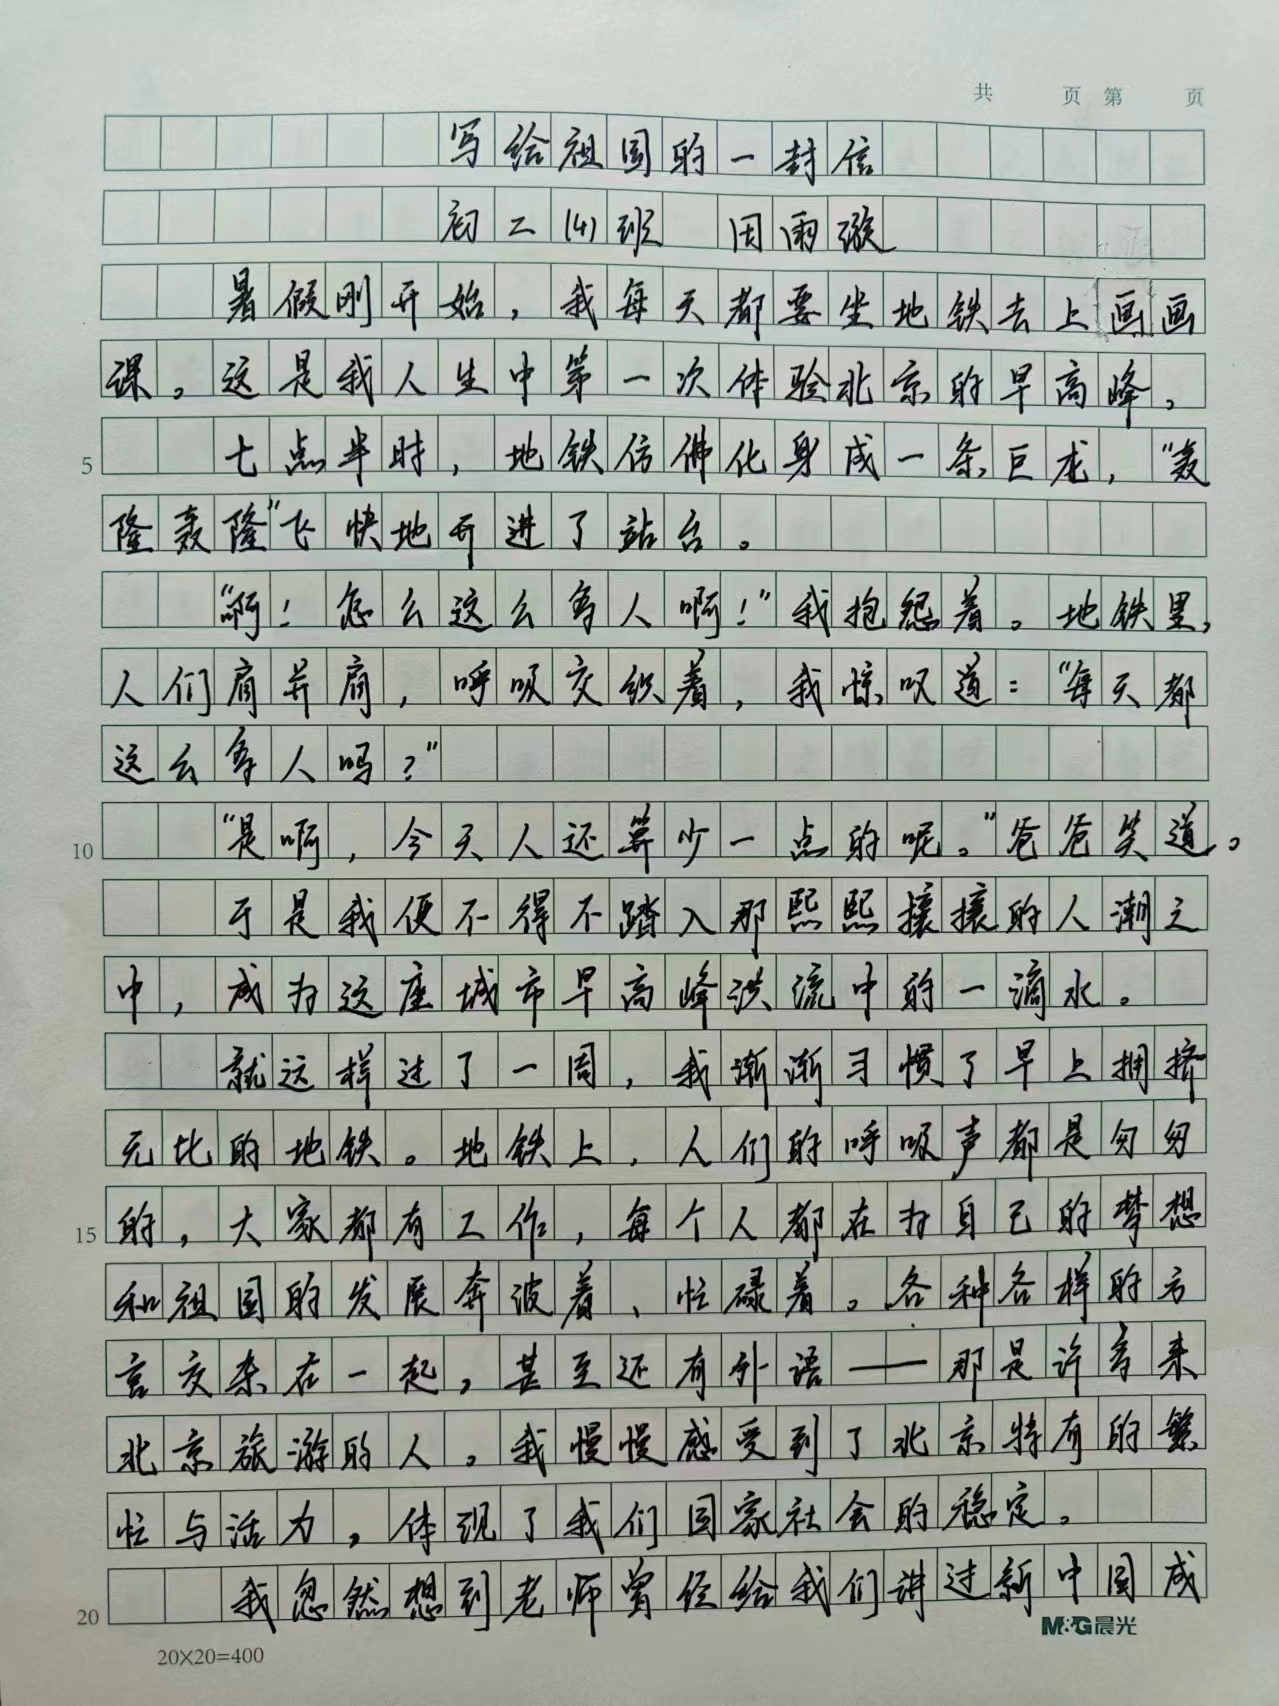 共 页 第 页
写给祖国的一封信
初二(4)班 田雨漩
暑假刚开始，我每天都要坐地铁去上画画
课。这是我人生中第一次体验北京的早高峰。
5 七点半时，地铁仿佛化身成一条巨龙，“轰
隆轰隆”飞快地开进了站台。
“啊！怎么这么多人啊！”我抱怨着。地铁里，
人们肩并肩，呼吸交织着，我惊叹道：“每天都
这么多人吗？”
10 “是啊，今天人还算少一点的呢。”爸爸笑道。
于是我便不得不踏入那熙熙攘攘的人潮之
中，成为这座城市早高峰洪流中的一滴水。
就这样过了一周，我渐渐习惯了早上拥挤
无比的地铁。地铁上，人们的呼吸声都是匆匆
15 的，大家都有工作，每个人都在为自己的梦想
和祖国的发展奔波着、忙碌着。各种各样的方
言交杂在一起，甚至还有外语——那是许多来
北京旅游的人。我慢慢感受到了北京特有的繁
忙与活力，体现了我们国家社会的稳定。
20 我忽然想到老师曾经给我们讲过新中国成
M&G晨光
20×20=400